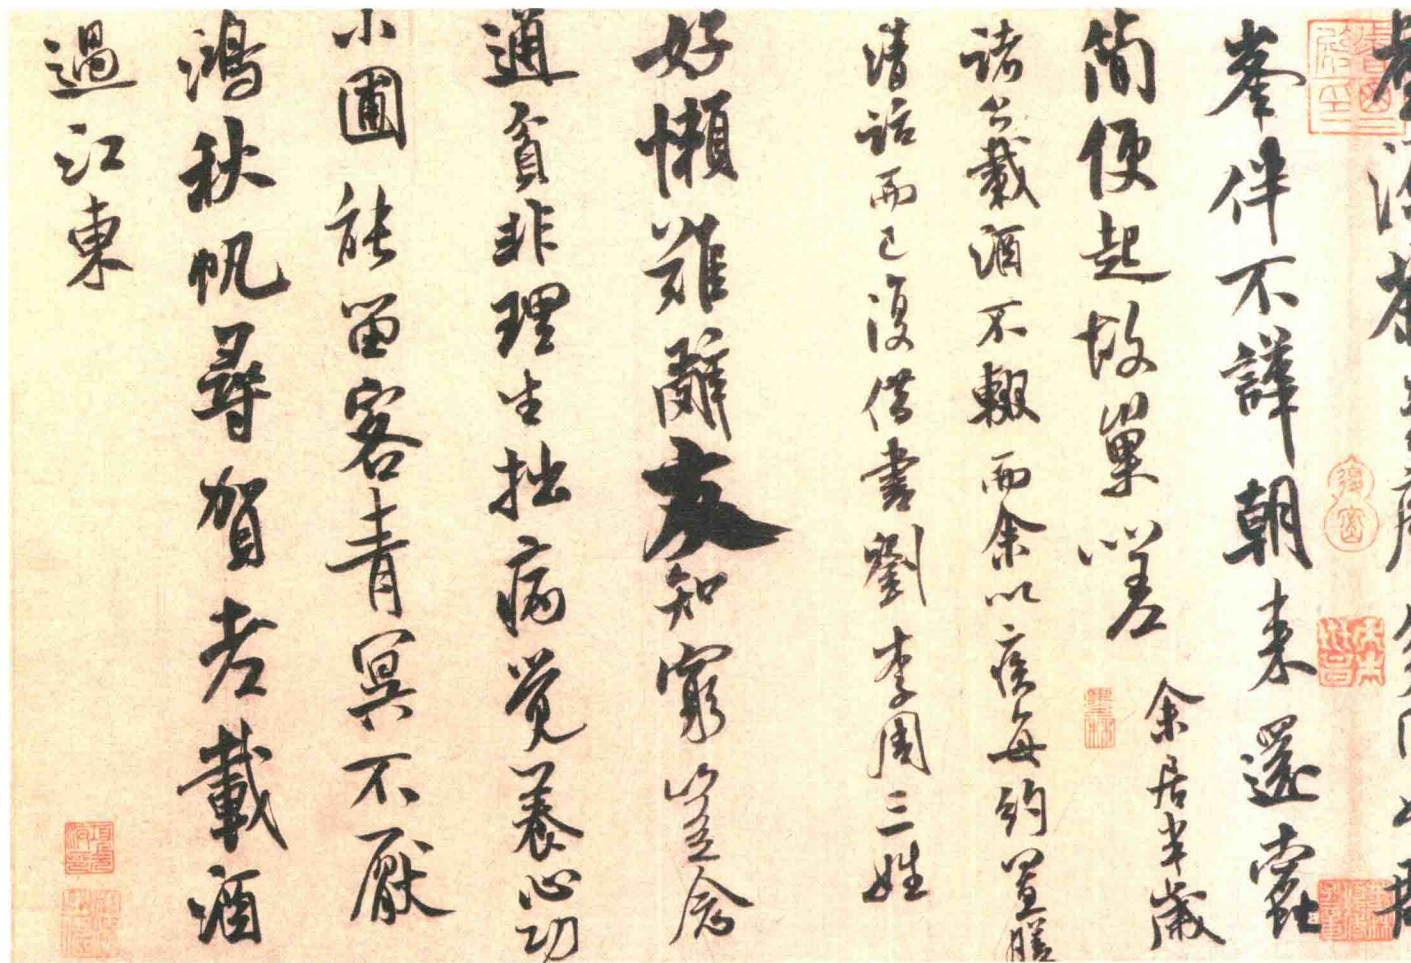 峯伴不譁朝来還蠹
簡便起故巢嗟
余居半歲
諸公載酒不輟而余以疾每約置膳
清話而已復借書劉李周三姓
好懶難辭友知窮豈念
通貧非理生拙病覺養心功
小圃能留客青冥不厭
鴻秋帆尋賀老載酒
過江東